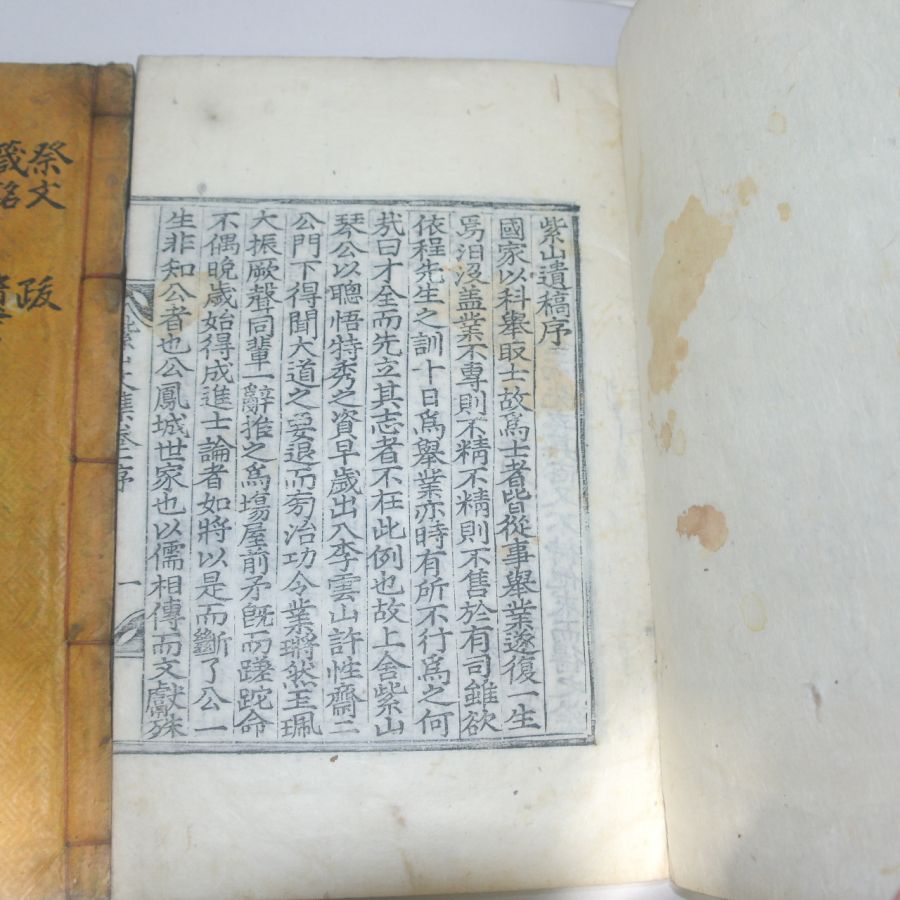 紫山遺稿序
國家以科擧取士故爲士者皆從事擧業遂復一生
爲汨沒盖業不專則不精不精則不售於有司雖欲
依程先生之訓十日爲擧業亦時有所不行爲之何
㢤曰才全而先立其志者不在此例也故上舍紫山
琴公以聰悟特秀之資早歲出入李雲山許性齋二
公門下得聞大道之要退而旁治功令業瓓然玉珮
大振厥聲同輩一辭推之爲塲屋前矛旣而蹉跎命
不偶晩歲始得成進士論者如將以是而斷了公一
生非知公者也公鳳城世家也以儒相傳而文獻殊
序
一
祭文
箴銘
跋